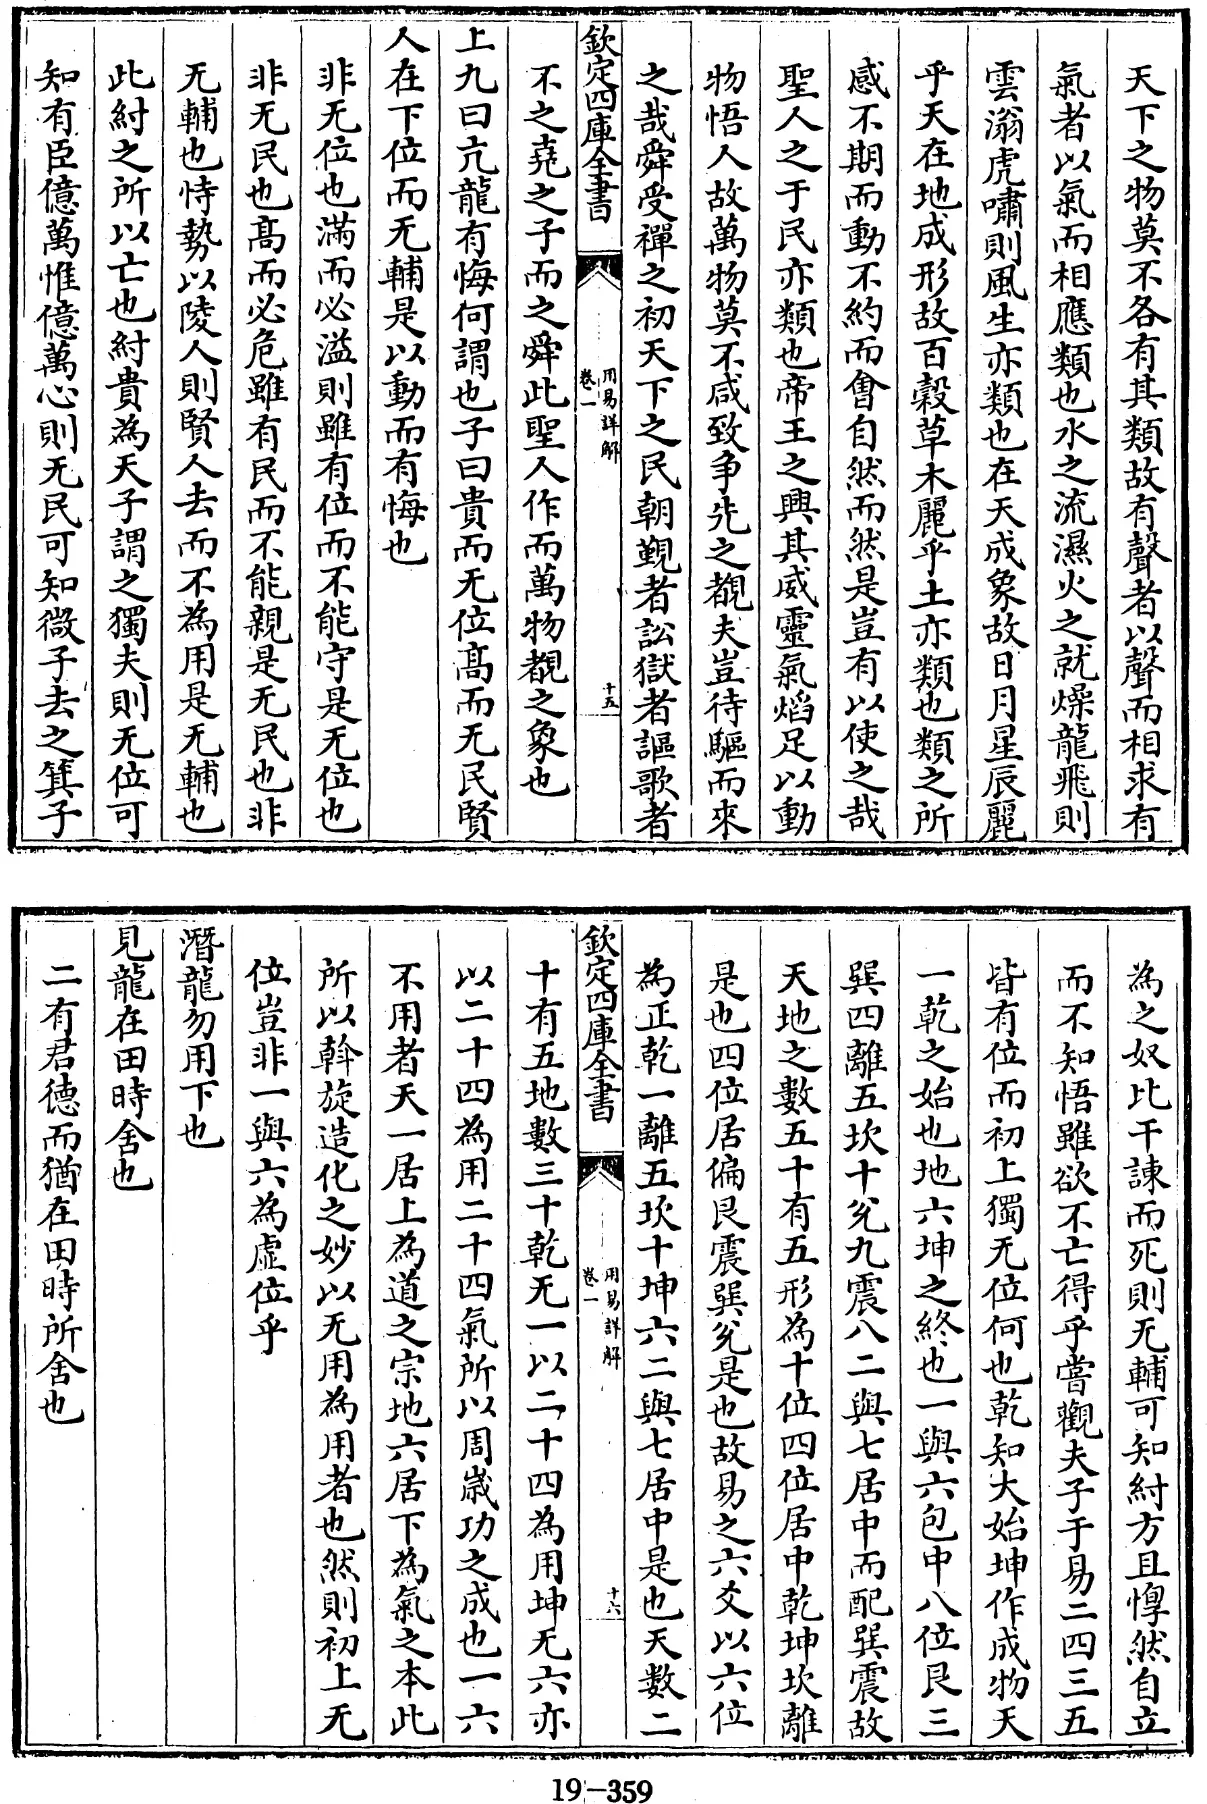 天下之物莫不各有其類故有聲者以聲而相求有
氣者以氣而相應類也水之流濕火之就燥龍飛則
雲滃虎嘯則風生亦類也在天成象故日月星辰麗
乎天在地成形故百榖草木麗乎土亦類也類之所
感不期而動不約而㑹自然而然是豈有以使之哉
聖人之于民亦類也帝王之興其威靈氣焰足以動
物悟人故萬物莫不咸致争先之覩夫豈待驅而來
之哉舜受禪之初天下之民朝覲者訟獄者謳歌者
欽定四庫全書
用易詳解
卷一
十五
不之堯之子而之舜此聖人作而萬物覩之象也
上九曰亢龍有悔何謂也子曰貴而无位髙而无民賢
人在下位而无輔是以動而有悔也
非无位也滿而必溢則雖有位而不能守是无位也
非无民也髙而必危雖有民而不能親是无民也非
无輔也恃勢以陵人則賢人去而不為用是无輔也
此紂之所以亡也紂貴為天子謂之獨夫則无位可
知有臣億萬惟億萬心則无民可知微子去之箕子
為之奴比干諫而死則无輔可知紂方且惸然自立
而不知悟雖欲不亡得乎嘗觀夫子于易二四三五
皆有位而初上獨无位何也乾知大始坤作成物天
一乾之始也地六坤之終也一與六包中八位艮三
巽四離五坎十兊九震八二與七居中而配巽震故
天地之數五十有五形為十位四位居中乾坤坎離
是也四位居偏艮震巽兊是也故易之六爻以六位
為正乾一離五坎十坤六二與七居中是也天數二
欽定四庫全書
用易詳解
卷一
十六
十有五地數三十乾无一以二十四為用坤无六亦
以二十四為用二十四氣所以周歲功之成也一六
不用者天一居上為道之宗地六居下為氣之本此
所以斡旋造化之妙以无用為用者也然則初上无
位豈非一與六為虛位乎
潛龍勿用下也
見龍在田時舍也
二有君德而猶在田時所舍也
19-359